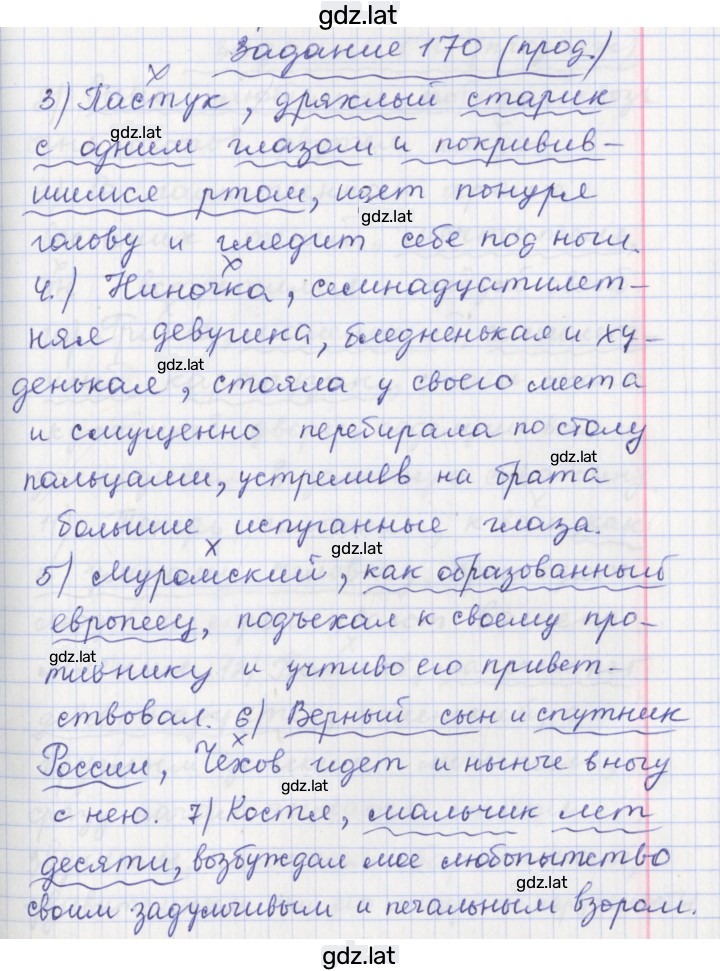 gdz.lat
Задание 170 (прод.)
3) Пастух, дряхлый старик
gdz.lat
с одним глазом и покривив-
шимся ртом, идет понуря
gdz.lat
голову и глядит себе под ноги.
4.) Ниночка, семнадцатилет-
няя девушка, бледненькая и ху-
gdz.lat
денькая, стояла у своего места
и смущенно перебирала по столу
gdz.lat
пальцами, устремив на брата
большие испуганные глаза.
gdz.lat
5) Муромский, как образованный
европеец, подъехал к своему про-
gdz.lat
тивнику и учтиво его привет-
ствовал. 6) Верный сын и спутник
России, Чехов идет и нынче в ногу
gdz.lat
с нею. 7) Костя, мальчик лет
десяти, возбуждал мое любопытство
gdz.lat
своим задумчивым и печальным взором.
gdz.lat